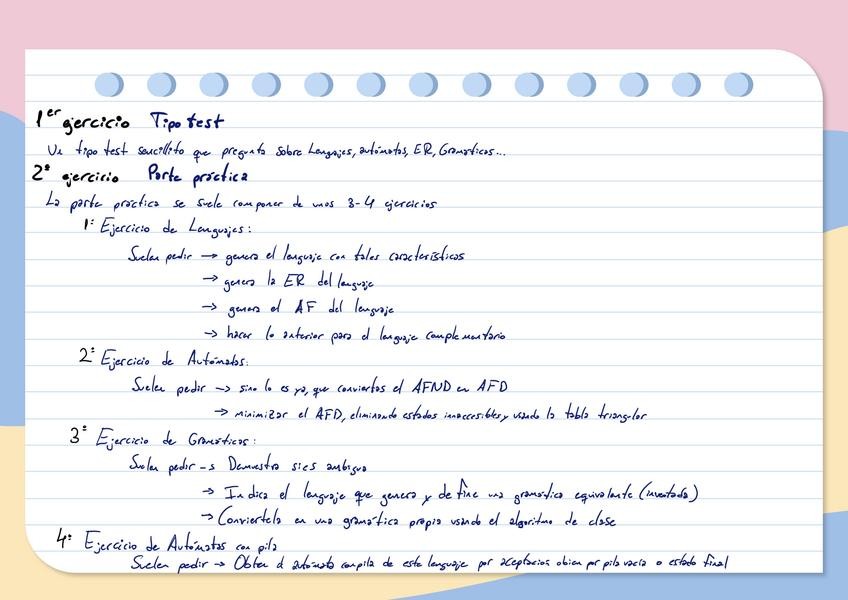 1er ejercicio Tipo test
Un tipo test sencillito que pregunta sobre Lenguajes, autómatas, ER, Gramáticas...
2º ejercicio Parte práctica
La parte práctica se suele componer de unos 3-4 ejercicios
1º Ejercicio de Lenguajes:
Suelen pedir → genera el lenguaje con tales características
→ genera la ER del lenguaje
→ genera el AF del lenguaje
→ hacer lo anterior para el lenguaje complementario
2º Ejercicio de Autómatas:
Suelen pedir → sino lo es ya, que conviertas el AFND en AFD
→ minimizar el AFD, eliminando estados innaccesibles y usando la tabla triangular
3º Ejercicio de Gramáticas:
Suelen pedir → Demuestra si es ambigua
→ Indica el lenguaje que genera y define una gramática equivalente (inventada)
→ Conviertela en una gramática propia usando el algoritmo de clase
4º Ejercicio de Autómatas con pila
Suelen pedir → Obten el autómata con pila de este lenguaje por aceptación o bien por pila vacía o estado final